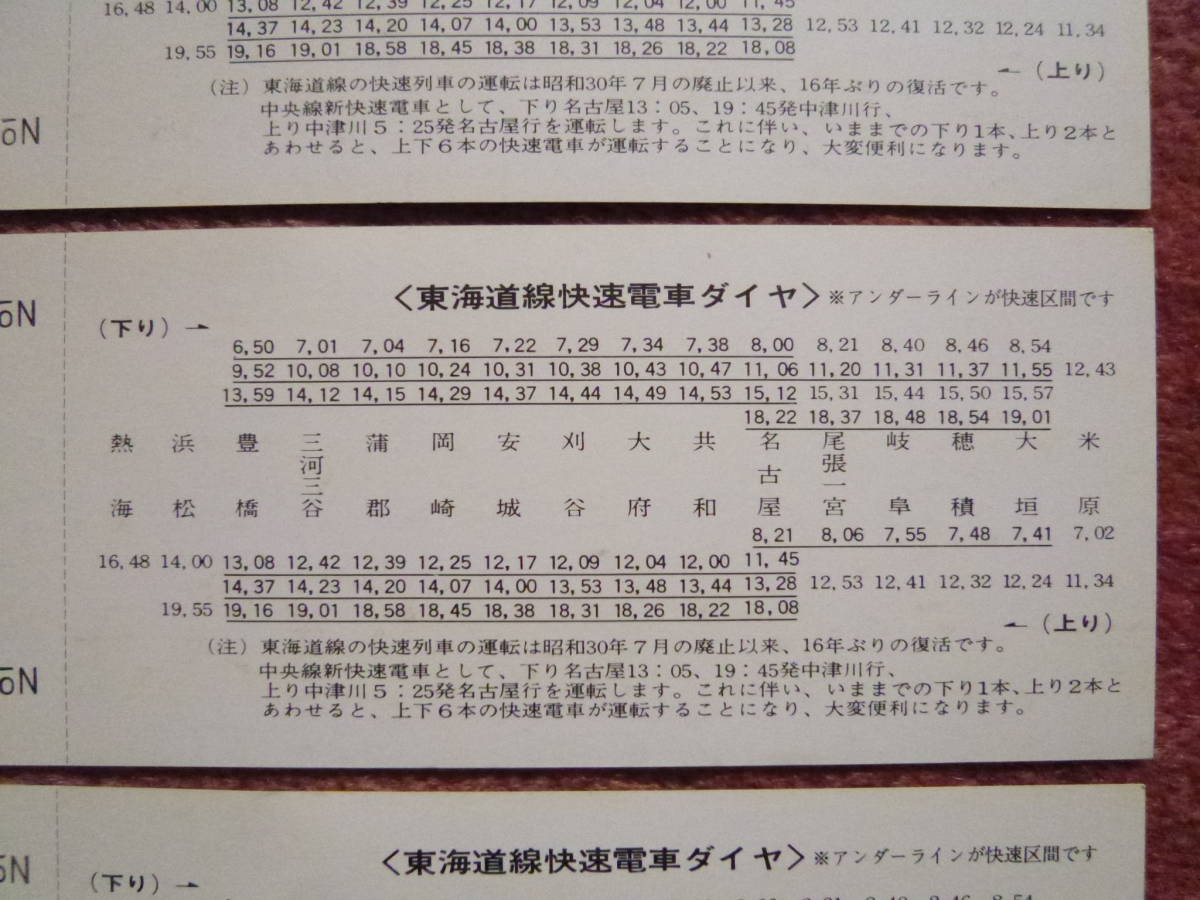 16,48 14,00 13,08 12,42 12,39 12,25 12,17 12,09 12,04 12,00 11,45
14,37 14,23 14,20 14,07 14,00 13,53 13,48 13,44 13,28 12,53 12,41 12,32 12,24 11,34
19,55 19,16 19,01 18,58 18,45 18,38 18,31 18,26 18,22 18,08
←(上り)
(注) 東海道線の快速列車の運転は昭和30年7月の廃止以来、16年ぶりの復活です。
中央線新快速電車として、下り名古屋13:05、19:45発中津川行、
上り中津川5:25発名古屋行を運転します。これに伴い、いままでの下り1本、上り2本と
あわせると、上下6本の快速電車が運転することになり、大変便利になります。
〈東海道線快速電車ダイヤ〉※アンダーラインが快速区間です
(下り)→
6,50 7,01 7,04 7,16 7,22 7,29 7,34 7,38 8,00 8,21 8,40 8,46 8,54
9,52 10,08 10,10 10,24 10,31 10,38 10,43 10,47 11,06 11,20 11,31 11,37 11,55 12,43
13,59 14,12 14,15 14,29 14,37 14,44 14,49 14,53 15,12 15,31 15,44 15,50 15,57
18,22 18,37 18,48 18,54 19,01
熱海 浜松 豊橋 三河三谷 蒲郡 岡崎 安城 刈谷 大府 共和 名古屋 尾張一宮 岐阜 穂積 大垣 米原
8,21 8,06 7,55 7,48 7,41 7,02
16,48 14,00 13,08 12,42 12,39 12,25 12,17 12,09 12,04 12,00 11,45
14,37 14,23 14,20 14,07 14,00 13,53 13,48 13,44 13,28 12,53 12,41 12,32 12,24 11,34
19,55 19,16 19,01 18,58 18,45 18,38 18,31 18,26 18,22 18,08
←(上り)
(注) 東海道線の快速列車の運転は昭和30年7月の廃止以来、16年ぶりの復活です。
中央線新快速電車として、下り名古屋13:05、19:45発中津川行、
上り中津川5:25発名古屋行を運転します。これに伴い、いままでの下り1本、上り2本と
あわせると、上下6本の快速電車が運転することになり、大変便利になります。
〈東海道線快速電車ダイヤ〉※アンダーラインが快速区間です
(下り)→